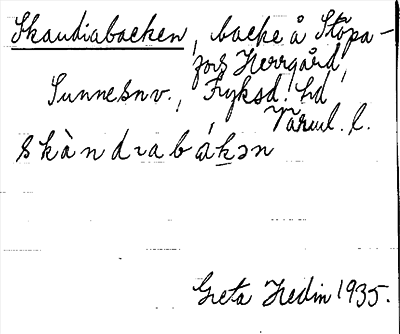 Skandiabacken, backe å Stöpa-
fors Herrgård,
Sunne snv., Fryksd. hd
Värml. l.
skàndiabákən
Greta Hedin 1935.